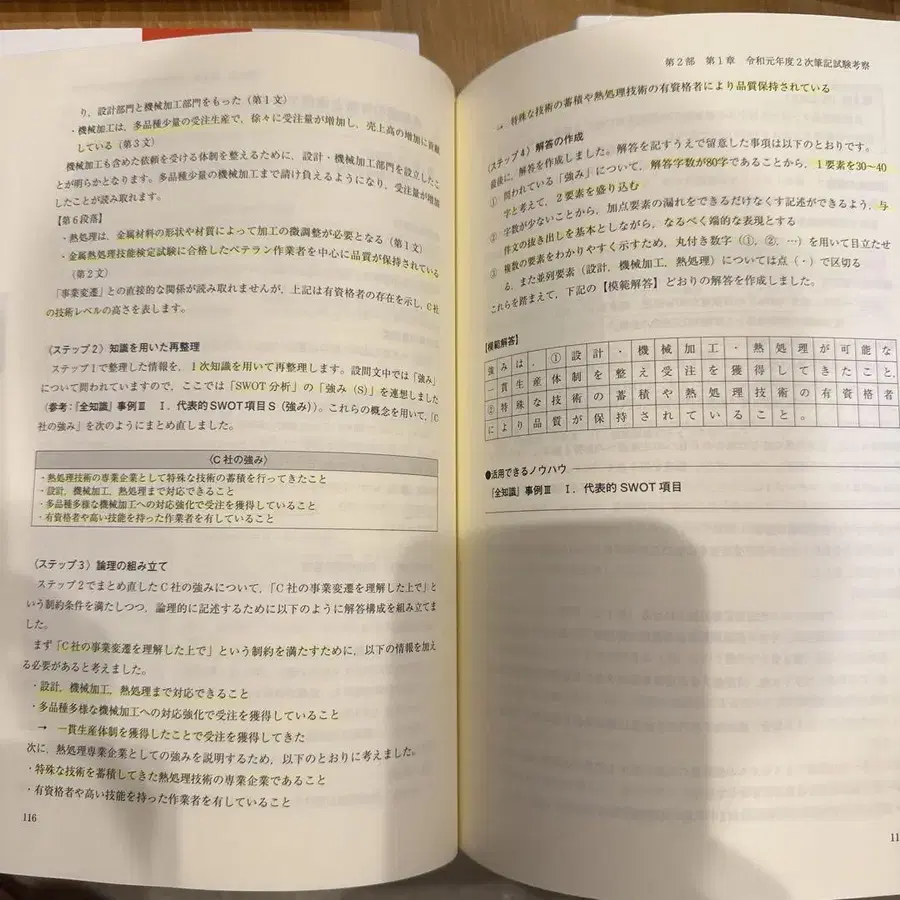 り，設計部門と機械加工部門をもった（第1文）
・機械加工は，多品種少量の受注生産で，徐々に受注量が増加し，売上高の増加に貢献
している（第3文）
機械加工も含めた依頼を受ける体制を整えるために，設計・機械加工部門を設立したこ
とが明らかとなります。多品種少量の機械加工まで請け負えるようになり，受注量が増加
したことが読み取れます。
【第6段落】
・熱処理は，金属材料の形状や材質によって加工の微調整が必要となる（第1文）
・金属熱処理技能検定試験に合格したベテラン作業者を中心に品質が保持されている
（第2文）
「事業変遷」との直接的な関係が読み取れませんが，上記は有資格者の存在を示し，C社
の技術レベルの高さを表します。
〈ステップ2〉知識を用いた再整理
ステップ1で整理した情報を，1次知識を用いて再整理します。設問文中では「強み」
について問われていますので，ここでは「SWOT分析」の「強み（S）」を連想しました
（参考：『全知識』事例Ⅲ　Ⅰ．代表的SWOT項目S（強み））。これらの概念を用いて，「C
社の強み」を次のようにまとめ直しました。
〈C社の強み〉
・熱処理技術の専業企業として特殊な技術の蓄積を行ってきたこと
・設計，機械加工，熱処理まで対応できること
・多品種多様な機械加工への対応強化で受注を獲得していること
・有資格者や高い技能を持った作業者を有していること
〈ステップ3〉論理の組み立て
ステップ2でまとめ直したC社の強みについて，「C社の事業変遷を理解した上で」と
いう制約条件を満たしつつ，論理的に記述するために以下のように解答構成を組み立てま
した。
まず「C社の事業変遷を理解した上で」という制約を満たすために，以下の情報を加え
る必要があると考えました。
・設計，機械加工，熱処理まで対応できること
・多品種多様な機械加工への対応強化で受注を獲得していること
→　一貫生産体制を獲得したことで受注を獲得してきた
次に，熱処理専業企業としての強みを説明するため，以下のとおりに考えました。
・特殊な技術を蓄積してきた熱処理技術の専業企業であること
・有資格者や高い技能を持った作業者を有していること
116
第2部　第1章　令和元年度2次筆記試験考察
→　特殊な技術の蓄積や熱処理技術の有資格者により品質保持されている
〈ステップ4〉解答の作成
最後に，解答を作成しました。解答を記すうえで留意した事項は以下のとおりです。
①　問われている「強み」について，解答字数が80字であることから，1要素を30～40
字と考えて，2要素を盛り込む
②　字数が少ないことから，加点要素の漏れをできるだけなくす記述ができるよう，与
件文の抜き出しを基本としながら，なるべく端的な表現とする
③　複数の要素をわかりやすく示すため，丸付き数字（①，②，…）を用いて目立たせ
る，また並列要素（設計，機械加工，熱処理）については点（・）で区切る
これらを踏まえて，下記の【模範解答】どおりの解答を作成しました。
【模範解答】
強みは，①設計・機械加工・熱処理が可能な
一貫生産体制を整え受注を獲得してきたこと，
②特殊な技術の蓄積や熱処理技術の有資格者
により品質が保持されていること。
●活用できるノウハウ
『全知識』事例Ⅲ　Ⅰ．代表的SWOT項目